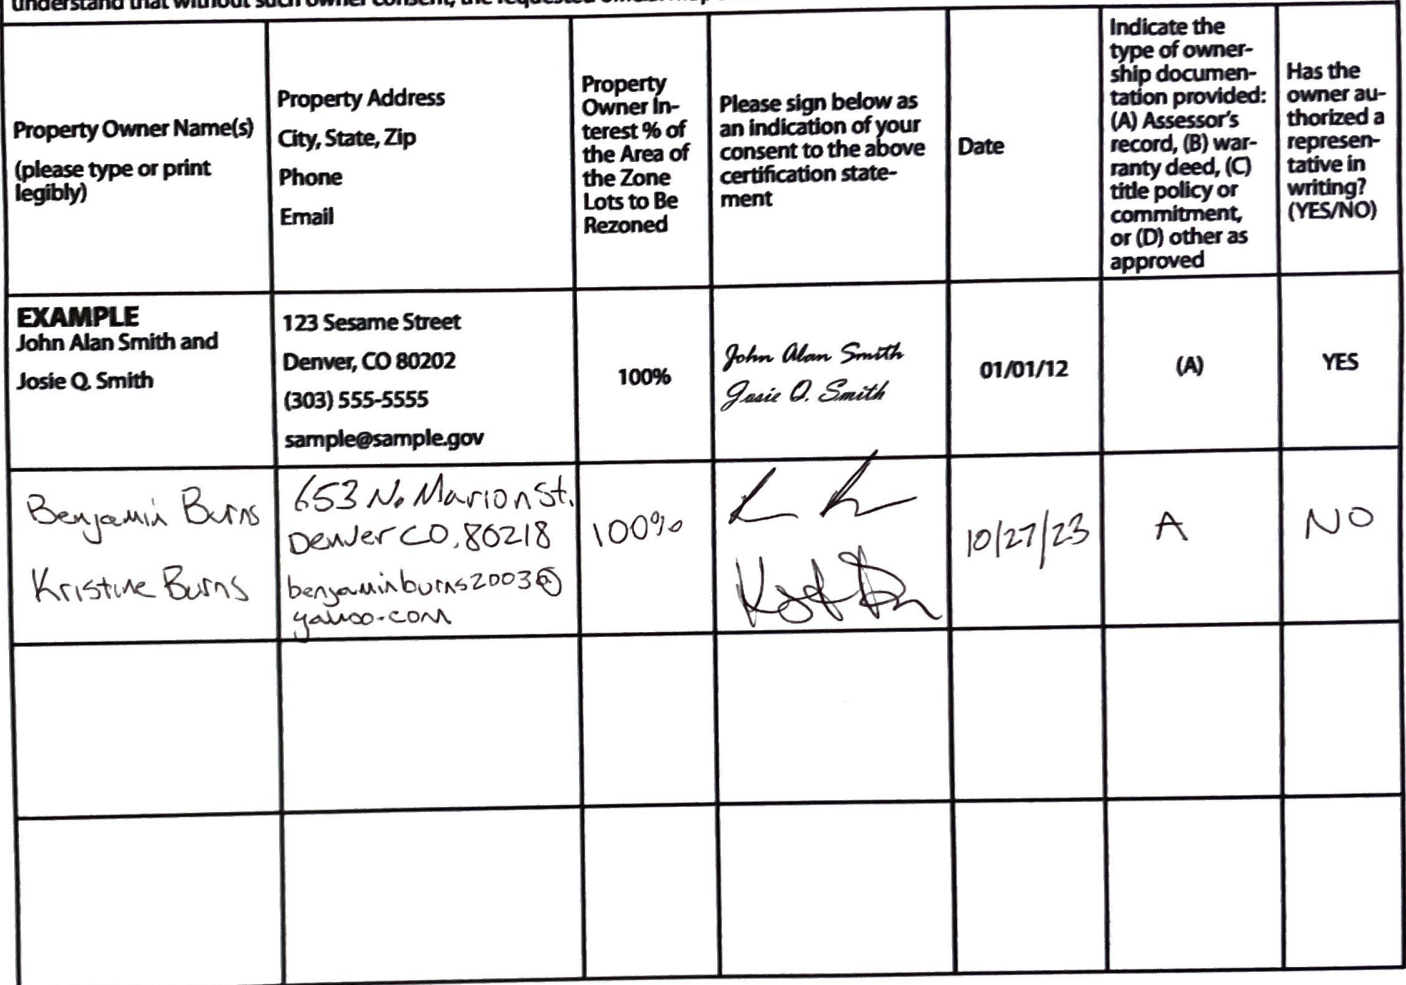 Property Owner Name(s)
(please type or print
legibly)
Property Address
City, State, Zip
Phone
Email
Property
Owner In-
terest % of
the Area of
the Zone
Lots to Be
Rezoned
Please sign below as
an indication of your
consent to the above
certification state-
ment
Date
Indicate the
type of owner-
ship documen-
tation provided:
(A) Assessor's
record, (B) war-
ranty deed, (C)
title policy or
commitment,
or (D) other as
approved
Has the
owner au-
thorized a
represen-
tative in
writing?
(YES/NO)
EXAMPLE
John Alan Smith and
Josie Q. Smith
123 Sesame Street
Denver, CO 80202
(303) 555-5555
sample@sample.gov
100%
John Alan Smith
Josie Q. Smith
01/01/12
(A)
YES
Benjamin Burns
Kristine Burns
653 N. Marion St.
Denver CO, 80218
benjaminburns2003@
yahoo.com
100%
10/27/23
A
NO